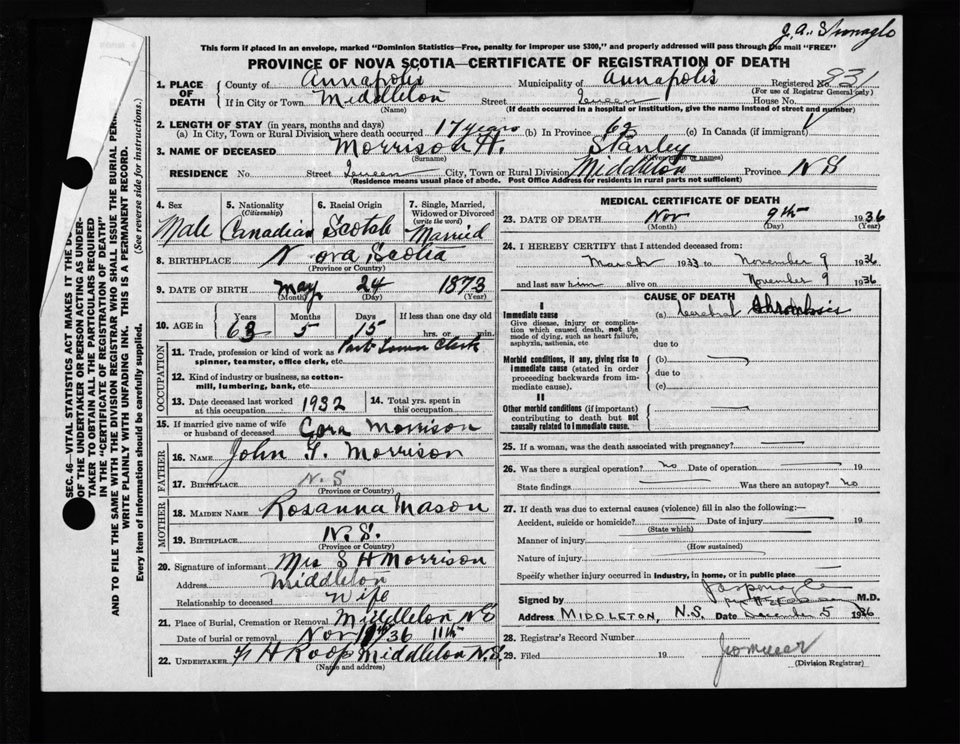 J.A. Sponaglo
This form if placed in an envelope, marked "Dominion Statistics—Free, penalty for improper use $300," and properly addressed will pass through the mail "FREE"
PROVINCE OF NOVA SCOTIA—CERTIFICATE OF REGISTRATION OF DEATH
1. PLACE OF DEATH County of Annapolis Municipality of Annapolis Registered No. 931
(For use of Registrar General only)
If in City or Town Middleton Street Queen House No.
(Name) (If death occurred in a hospital or institution, give the name instead of street and number)
2. LENGTH OF STAY (in years, months and days)
(a) In City, Town or Rural Division where death occurred 17 years (b) In Province 62 (c) In Canada (if immigrant)
3. NAME OF DECEASED Morrison H. Stanley
(Surname) (Given name or names)
RESIDENCE No. Street Queen City, Town or Rural Division Middleton Province N S
(Residence means usual place of abode. Post Office Address for residents in rural parts not sufficient)
4. Sex Male
5. Nationality (Citizenship) Canadian
6. Racial Origin Scotch
7. Single, Married, Widowed or Divorced (write the word) Married
8. BIRTHPLACE Nova Scotia
(Province or Country)
9. DATE OF BIRTH May 24 1873
(Month) (Day) (Year)
10. AGE in Years 63 Months 5 Days 15 If less than one day old hrs. or min.
OCCUPATION
11. Trade, profession or kind of work as spinner, teamster, office clerk, etc. Town Clerk
12. Kind of industry or business, as cotton-mill, lumbering, bank, etc.
13. Date deceased last worked at this occupation 1932
14. Total yrs. spent in this occupation
15. If married give name of wife or husband of deceased Morrison
FATHER
16. Name John G. Morrison
17. Birthplace N. S
(Province or Country)
MOTHER
18. MAIDEN NAME Rosanna Mason
19. BIRTHPLACE N. S.
(Province or Country)
20. Signature of informant Mrs S H Morrison
Address Middleton
Relationship to deceased Wife
21. Place of Burial, Cremation or Removal Middleton N S
Date of burial or removal Nov 36 11th
22. UNDERTAKER H Roop Middleton N.S.
(Name and address)
MEDICAL CERTIFICATE OF DEATH
23. DATE OF DEATH Nov 9th 1936
(Month) (Day) (Year)
24. I HEREBY CERTIFY that I attended deceased from:
March 1933 to November 9 1936
and last saw him alive on November 9 1936
CAUSE OF DEATH
I
Immediate cause
Give disease, injury or complication which caused death, not the mode of dying, such as heart failure, asphyxia, asthenia, etc
(a) Cerebral Thrombosis
due to
Morbid conditions, if any, giving rise to immediate cause (stated in order proceeding backwards from immediate cause).
(b)
due to
(c)
II
Other morbid conditions (if important) contributing to death but not causally related to immediate cause.
25. If a woman, was the death associated with pregnancy?
26. Was there a surgical operation? no Date of operation 19
State findings Was there an autopsy? no
27. If death was due to external causes (violence) fill in also the following:—
Accident, suicide or homicide? Date of injury 19
(State which)
Manner of injury
(How sustained)
Nature of injury
Specify whether injury occurred in industry, in home, or in public place
Signed by M.D.
Address MIDDLETON, N.S. Date December 5 1936
28. Registrar's Record Number
29. Filed 19
(Division Registrar)
SEC. 46—VITAL STATISTICS ACT MAKES IT THE
OF THE UNDERTAKER OR PERSON ACTING AS UNDER-
TAKER TO OBTAIN ALL THE PARTICULARS REQUIRED
IN THE "CERTIFICATE OF REGISTRATION OF DEATH"
AND TO FILE THE SAME WITH THE DIVISION REGISTRAR WHO SHALL ISSUE THE BURIAL
WRITE PLAINLY WITH UNFADING INK. THIS IS A PERMANENT RECORD.
Every item of information should be carefully supplied. (See reverse side for instructions.)